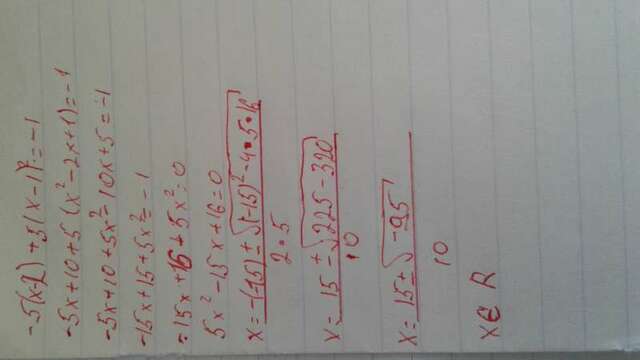 -5(x-2)+5(x-1)²=-1
-5x+10+5(x²-2x+1)=-1
-5x+10+5x²-10x+5=-1
-15x+15+5x²=-1
-15x+16+5x²=0
5x²-15x+16=0
x=-(-15)±√(-15)²-4•5•16
2•5
x=15±√225-320
10
x=15±√-95
10
x∈R